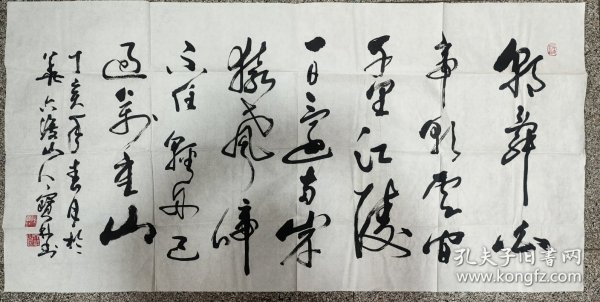 朝辞白
帝彩云间
千里江陵
一日还两岸
猿声啼
不住轻舟已
过万重山
丁亥年春月於
山人
孔夫子旧书网
www.kongfz.com